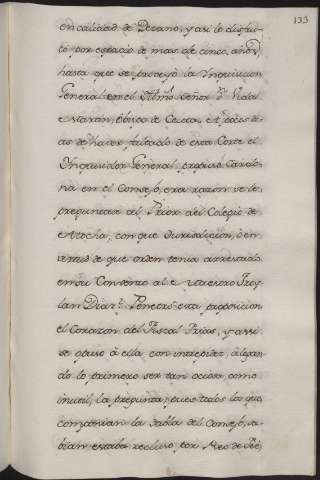 133
en calidad de Decano, y asi lo disfru-
tó por espacio de mas de cinco, años,
hasta que se proveyó la Ynquisicion
General en el Yllmo. Señor Dn. Vidal
Marin, Obispo de Ceuta, et pocos di-
as de haver faltado de esta Corte el
Ynquisidor General, propuso Cardo-
na en el Consejo, era razon se le
preguntase al Prior del Colegio de
Atocha, con que Jurisdiccion, ò en
virtud de que orden tenia arrestado
en su Convento al Maestro Froy-
lan Diaz. Penetró esta proposicion
el Corazon del Fiscal Frias, y assi
se opuso à ella con intrepidez, alegan-
do lo primero ser tan ociosa, como
inutil, la pregunta; pues todos los que
componian la tabla del Consejo, sa-
bian estaba recluso por Reo de Feé,